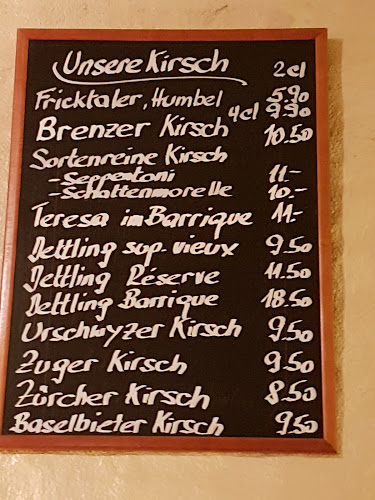 Unsere Kirsch 2cl
Fricktaler, Humbel 5.90
4cl 9.90
Brenzer Kirsch 10.50
Sortenreine Kirsch
- Seppentoni 11.-
- Schattenmorelle 10.-
Teresa im Barrique 11.-
Dettling sup. vieux 9.50
Dettling Réserve 11.50
Dettling Barrique 18.50
Urschwyzer Kirsch 9.50
Zuger Kirsch 9.50
Zürcher Kirsch 8.50
Baselbieter Kirsch 9.50